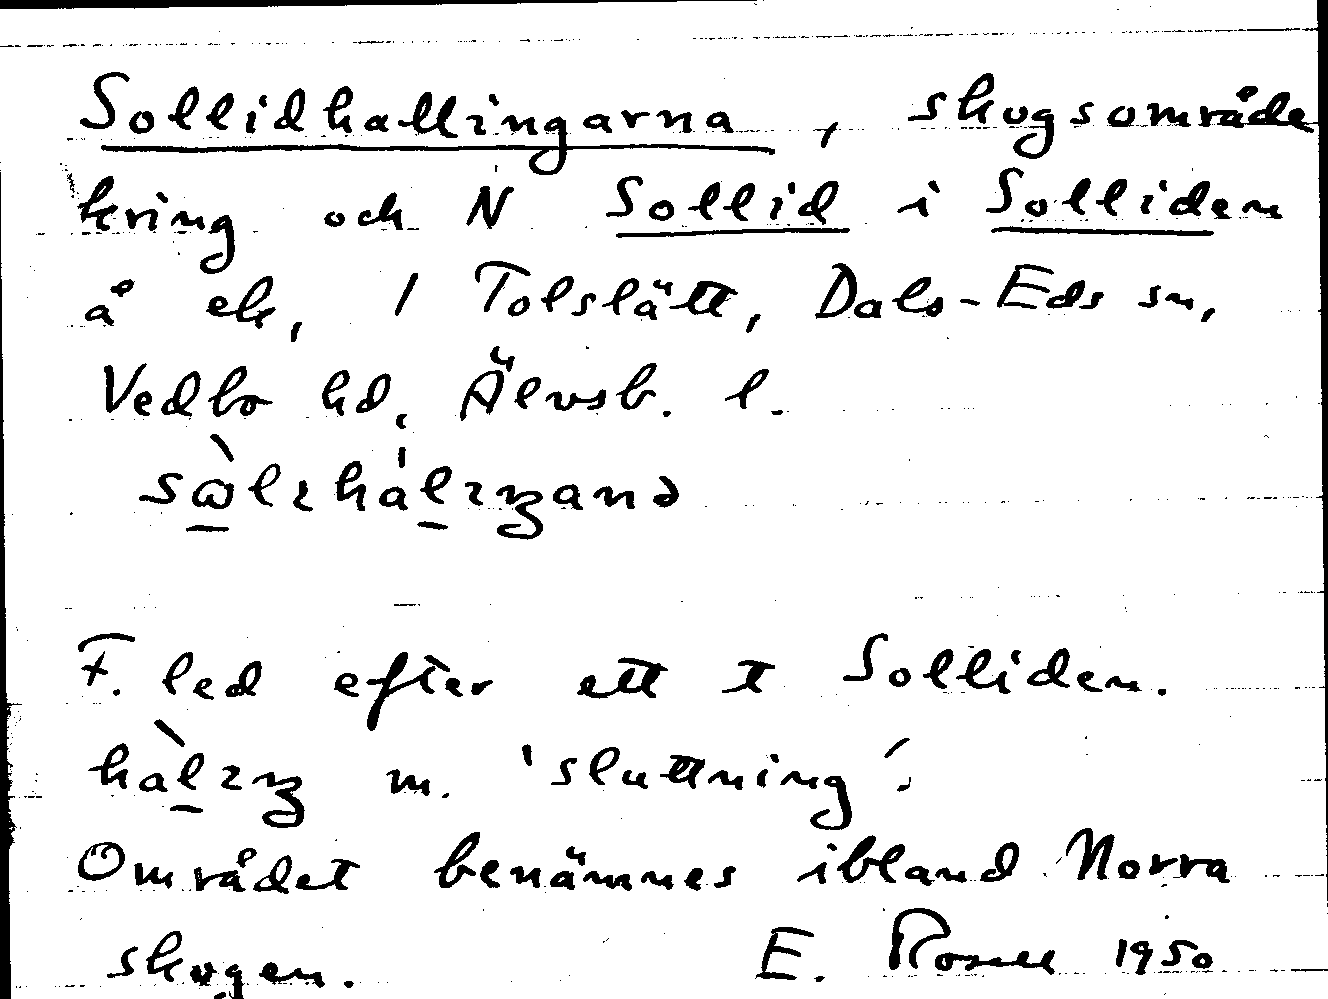 Sollidhallingarna, skogsområde
kring och N Sollid i Solliden
å ek, 1 Tolslätt, Dals-Eds sn,
Vedbo hd, Älvsb. l.
F. led efter ett t Solliden.
m. 'sluttning'.
Området benämnes ibland Norra
skogen. E. Rosell 1950